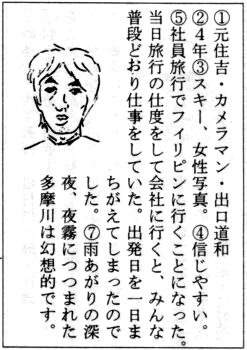 ①元住吉・カメラマン・出口道和
②4年③スキー、女性写真。④信じやすい。
⑤社員旅行でフィリピンに行くことになった。
当日旅行の仕度をして会社に行くと、みんな
普段どおり仕事をしていた。出発日を一日ま
ちがえてしまったので
した。⑦雨あがりの深
夜、夜霧につつまれた
多摩川は幻想的です。